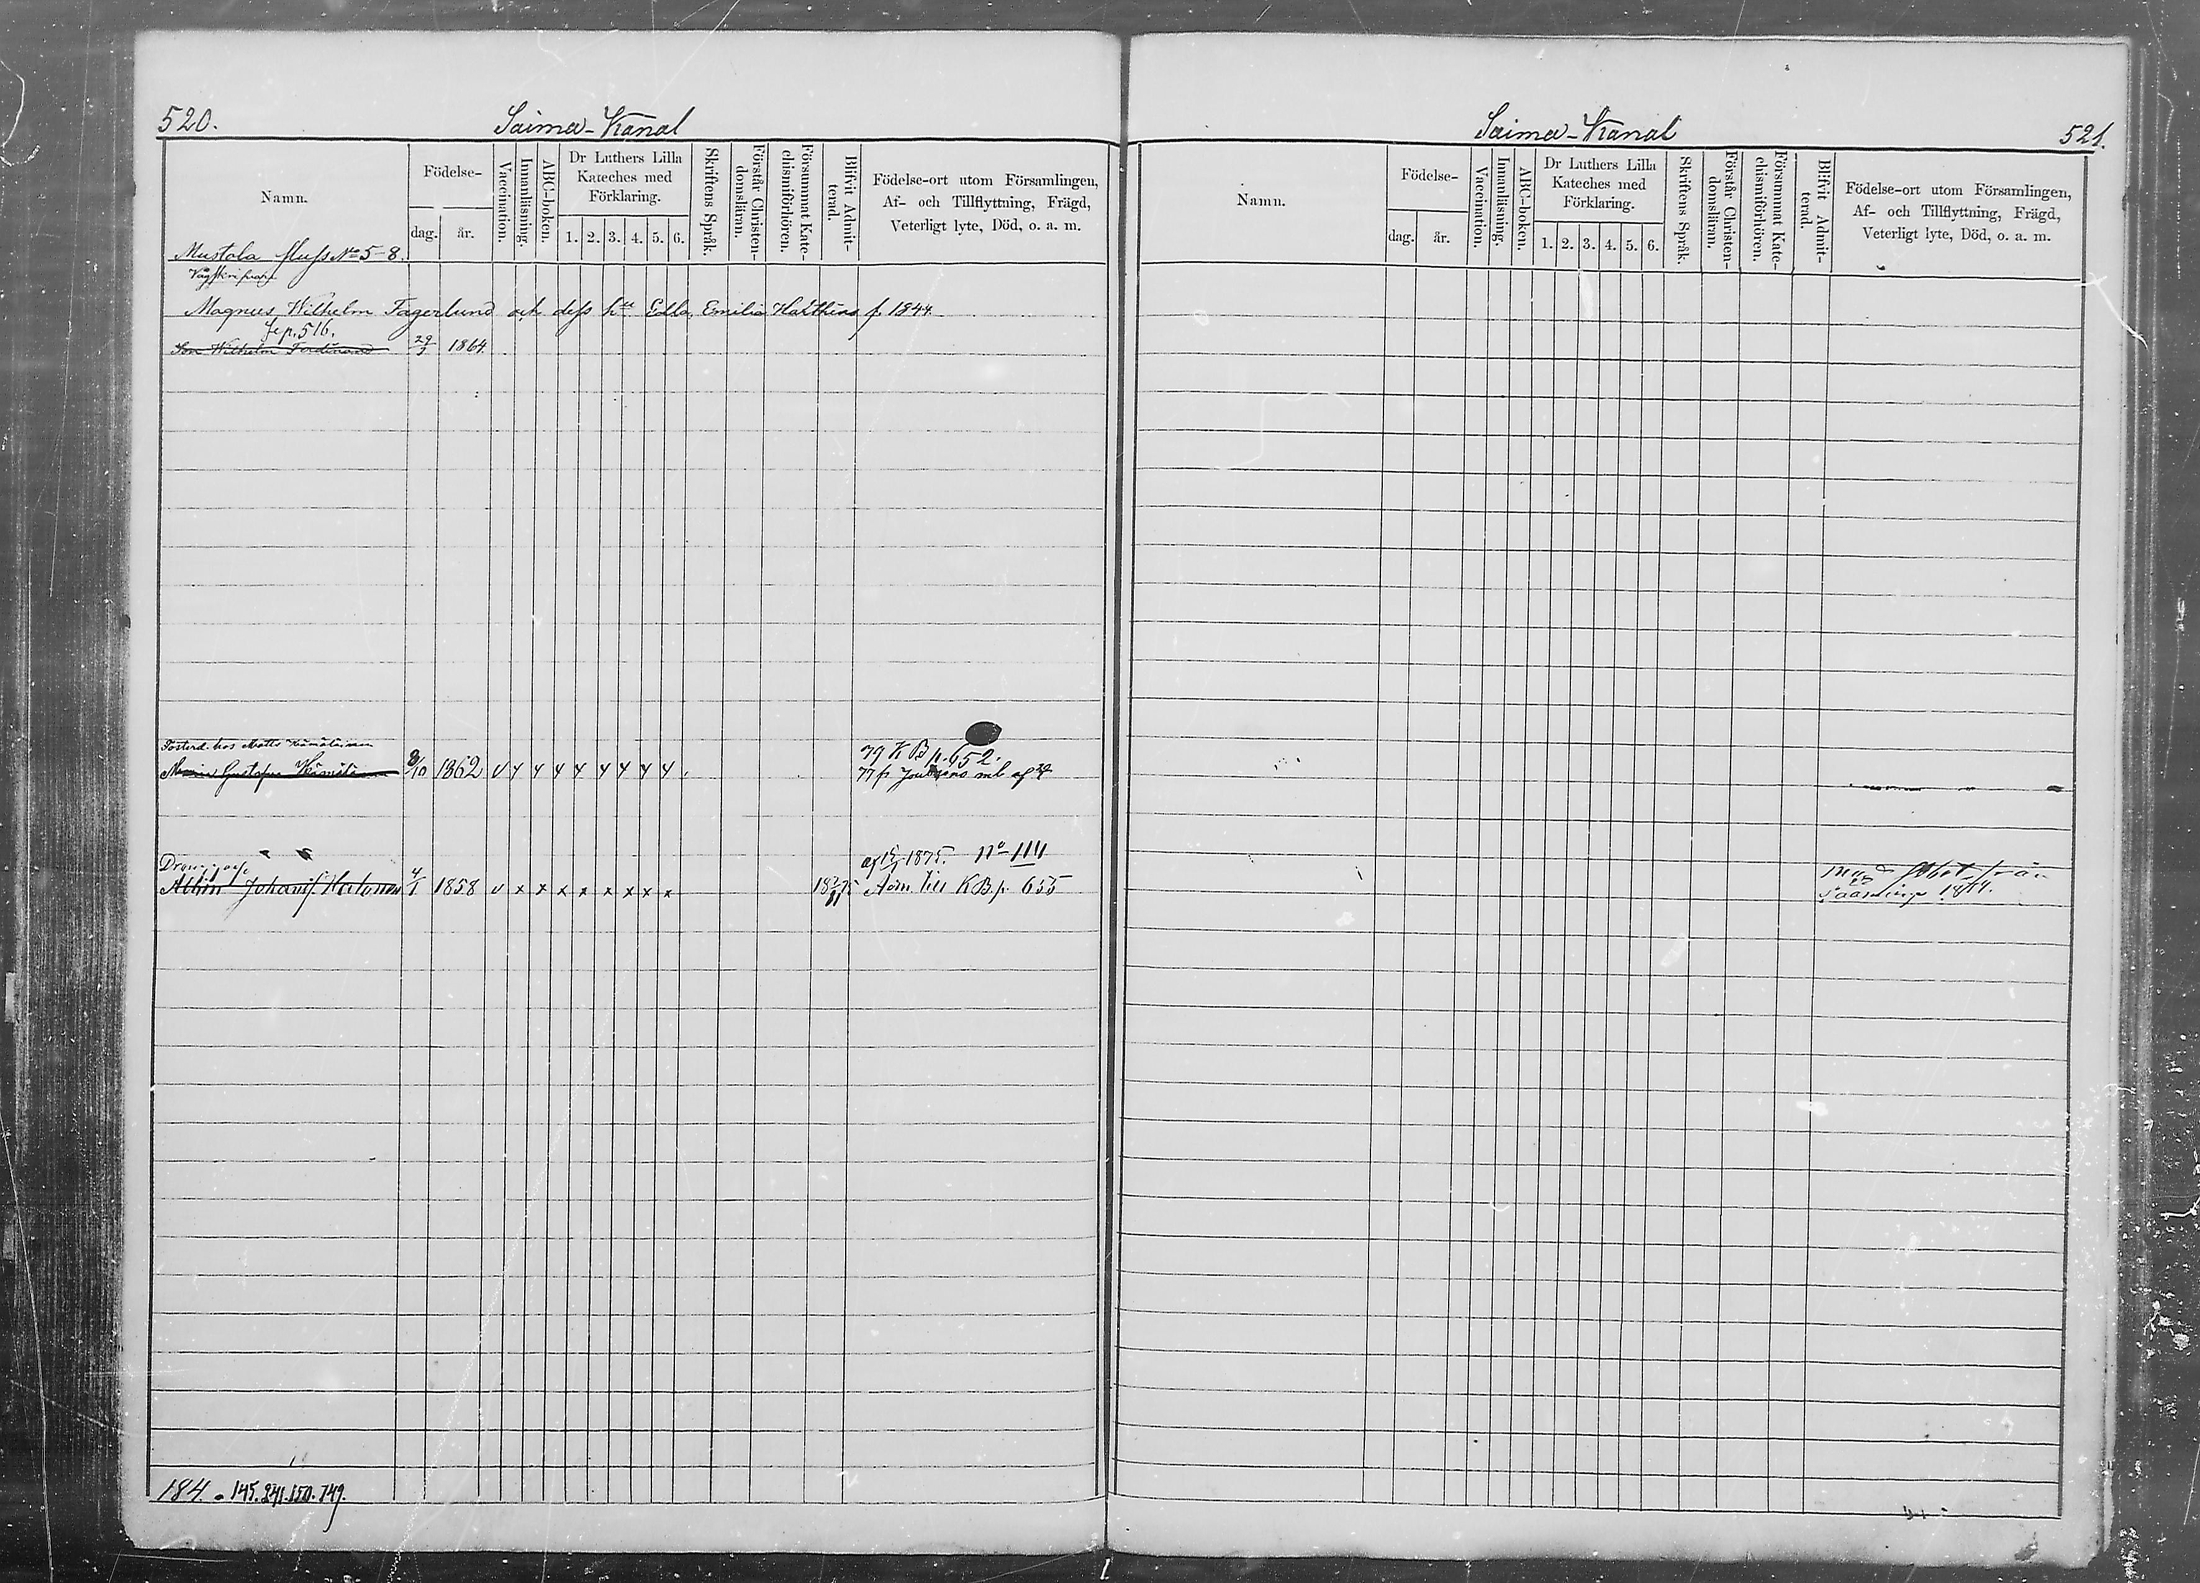 520.
Saima-Kanal
Namn.
Födelse-
dag.
år.
Vaccination.
Innanläsning.
ABC-boken.
Dr Luthers Lilla
Kateches med
Förklaring.
1. 2. 3. 4. 5. 6.
Skriftens Språk.
Förstår Christen-
domsläran.
Försummat Kate-
chismiförhören.
Blifvit Admit-
terad.
Födelse-ort utom Församlingen,
Af- och Tillflyttning, Frägd,
Veterligt lyte, Död, o. a. m.
Mustola sluss No 5-8.
Magnus Wilhelm Fagerlund och dess hu Edla Emilia f. 1844.
Se p. 516.
Son Wilhelm Ferdinand 29/3 1864.
Fosterd. hos Matts
79 K B p. 652.
Maria Gustafva 1862 v
af 15/ 1875. No 114
Johansf. 4/1 1858 v x x x x x x x x Adm. till K B. p. 655
184. 145. 241. 150. 749.
Saima-Kanal
521.
Namn.
Födelse-
dag.
år.
Vaccination.
Innanläsning.
ABC-boken.
Dr Luthers Lilla
Kateches med
Förklaring.
1. 2. 3. 4. 5. 6.
Skriftens Språk.
Förstår Christen-
domsläran.
Försummat Kate-
chismiförhören.
Blifvit Admit-
terad.
Födelse-ort utom Församlingen,
Af- och Tillflyttning, Frägd,
Veterligt lyte, Död, o. a. m.
från